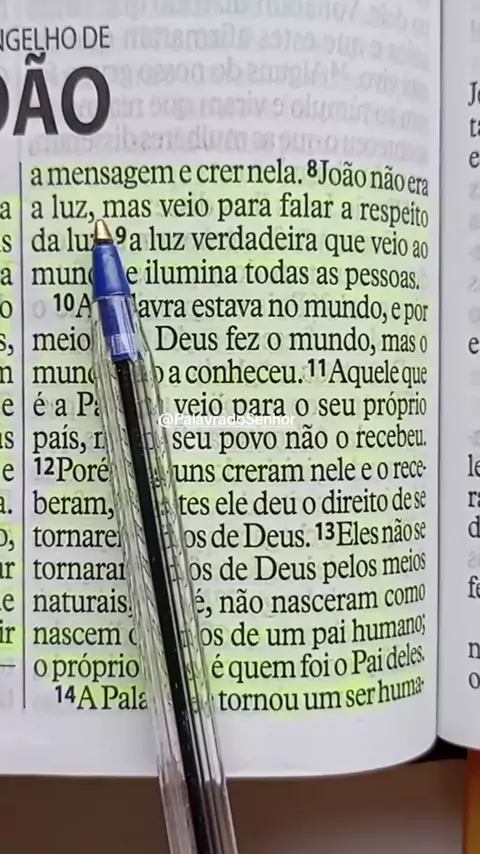 NGELHO DE
OÃO
a mensagem e crer nela. 8João não era
a luz, mas veio para falar a respeito
da luz 9a luz verdadeira que veio ao
mundo e ilumina todas as pessoas.
10A Palavra estava no mundo, e por
meio Deus fez o mundo, mas o
mundo a conheceu. 11Aquele que
é a Pa veio para o seu próprio
país, seu povo não o recebeu.
12Poré uns creram nele e o rece-
beram, tes ele deu o direito de se
tornare os de Deus. 13Eles não se
tornaram os de Deus pelos meios
naturais é, não nasceram como
nascem os de um pai humano;
o próprio é quem foi o Pai deles.
14A Pala tornou um ser huma-
@PalavradoSenhor